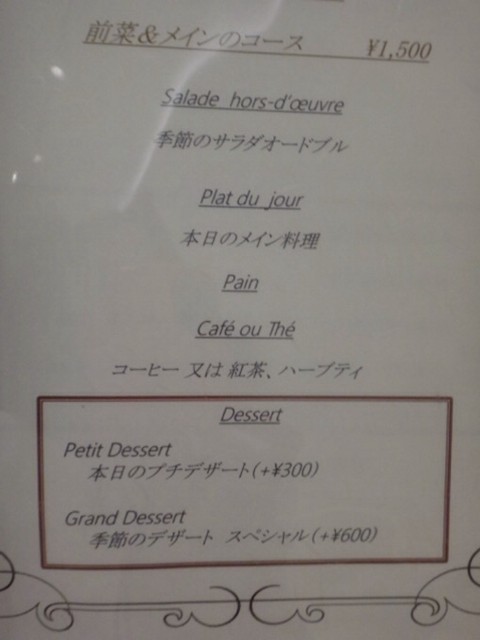 前菜&メインのコース ¥1,500
Salade hors-d'œuvre
季節のサラダオードブル
Plat du jour
本日のメイン料理
Pain
Café ou Thé
コーヒー 又は 紅茶、ハーブティ
Dessert
Petit Dessert
本日のプチデザート(+¥300)
Grand Dessert
季節のデザート スペシャル(+¥600)